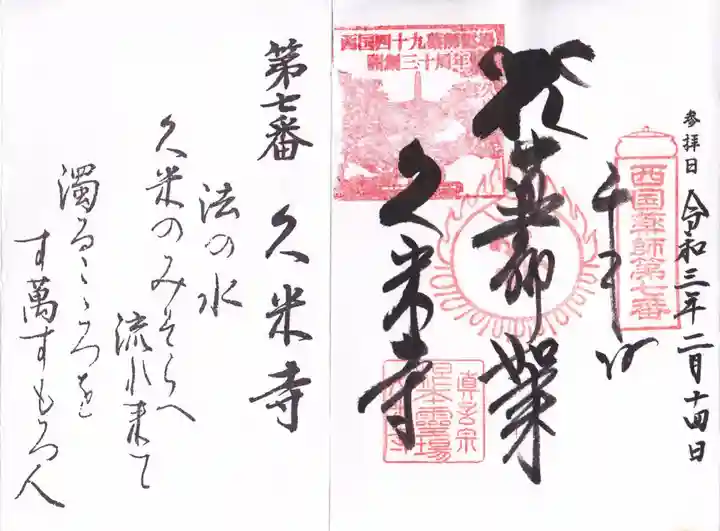 参拝日 令和三年二月十四日
西国薬師第七番
西国四十九薬師霊場
開創三十周年
久米寺
真言宗
根本霊場
第七番 久米寺
法の水
久米のみそらへ
流れ来て
濁るこゝろを
す萬すもろ人